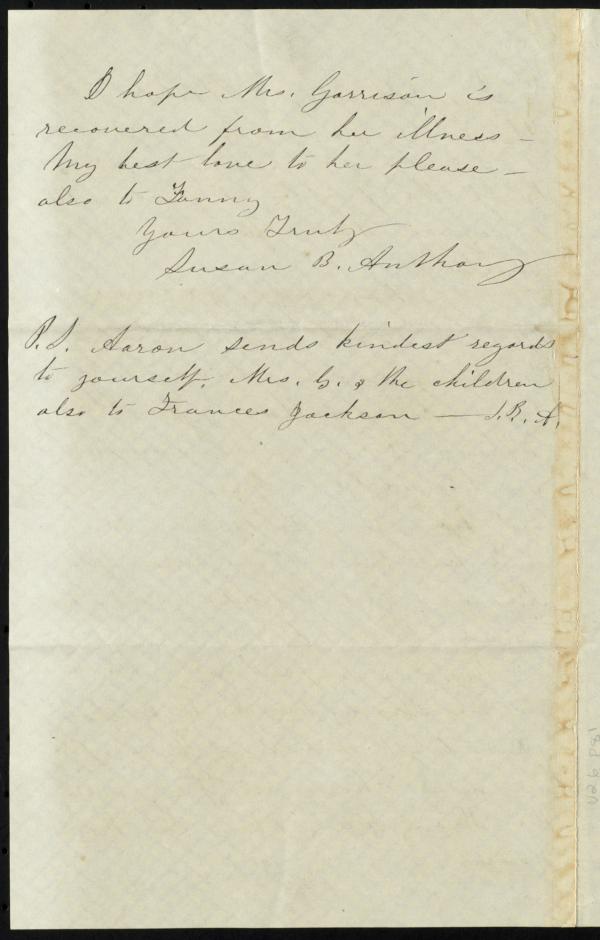 I hope Mrs. Garrison is
recovered from her illness –
My best love to her please –
also to Fanny
Yours Truly
Susan B. Anthony
P.S. Aaron sends kindest regards
to yourself, Mrs. G. & the children
also to Frances Jackson — S.B.A.